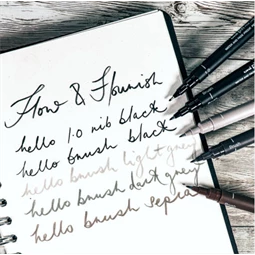 Flow & Flourish
hello 1.0 nib black
hello brush black
hello brush light grey
hello brush dark grey
hello brush sepia